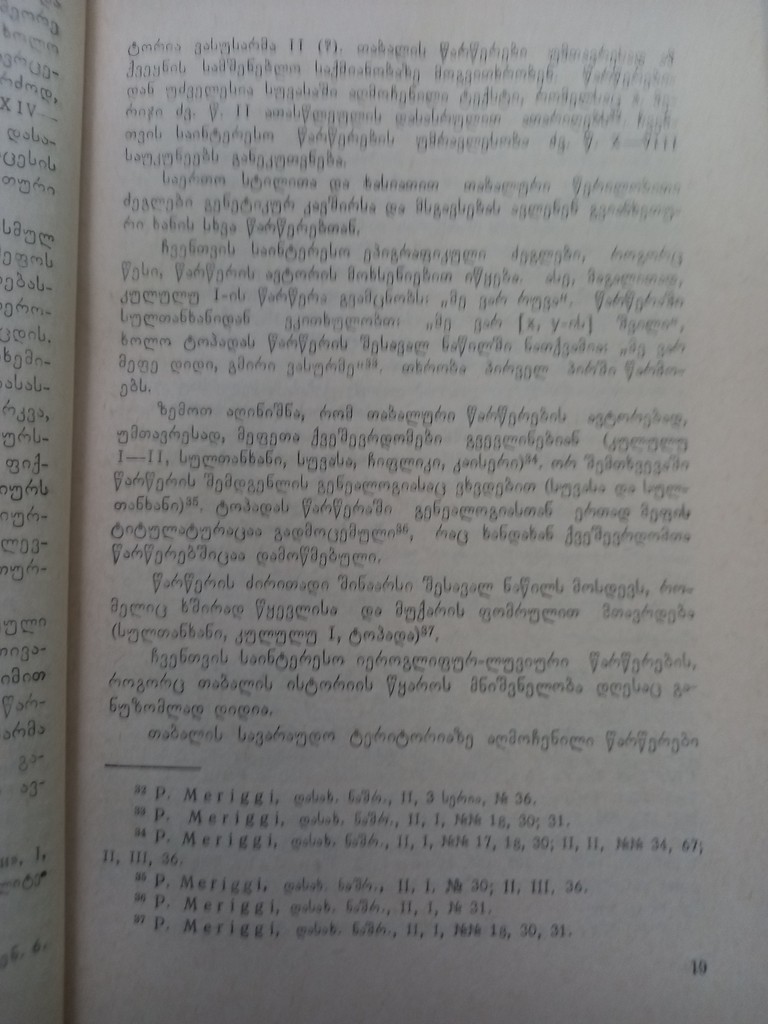 ტორია ვასუსარმა II (?). თაბალის წარწერები უმთავრესად ამ
ქვეყნის სამშენებლო საქმიანობაზე მოგვითხრობენ. წარწერები-
დან უძველესია სუვასაში აღმოჩენილი ტექსტი, რომელსაც პ. მე-
რიჯი ძვ. წ. II ათასწლეულის დასასრულით ათარიღებს³². ჩვენ-
თვის საინტერესო წარწერების უმრავლესობა ძვ. წ. X—VIII
საუკუნეებს განეკუთვნება.
საერთო სტილითა და ხასიათით თაბალური წერილობითი
ძეგლები გენეტიკურ კავშირსა და მსგავსებას ავლენენ გვიანხეთუ-
რი ხანის სხვა წარწერებთან.
ჩვენთვის საინტერესო ეპიგრაფიკული ძეგლები, როგორც
წესი, წარწერის ავტორის მოხსენიებით იწყება. ასე, მაგალითად,
კულულუ I-ის წარწერა გვამცნობს: „მე ვარ რუვა“. წარწერაში
სულთანხანიდან ვკითხულობთ: „მე ვარ [x, y-ის] შვილი“,
ხოლო ტოპადას წარწერის შესავალ ნაწილში ნათქვამია: „მე ვარ
მეფე დიდი, გმირი ვასურმე“³³. თხრობა პირველ პირში წარმო-
ებს.
ზემოთ აღინიშნა, რომ თაბალური წარწერების ავტორებად,
უმთავრესად, მეფეთა ქვეშევრდომები გვევლინებიან (კულულუ
I—II, სულთანხანი, სუვასა, ჩიფლიკი, კაისერი)³⁴. ორ შემთხვევაში
წარწერის შემდგენლის გენეალოგიასაც ვხვდებით (სუვასა და სულ-
თანხანი)³⁵. ტოპადას წარწერაში გენეალოგიასთან ერთად მეფის
ტიტულატურაცაა გადმოცემული³⁶, რაც ხანდახან ქვეშევრდომთა
წარწერებშიცაა დამოწმებული.
წარწერის ძირითადი შინაარსი შესავალ ნაწილს მოსდევს, რო-
მელიც ხშირად წყევლისა და მუქარის ფომრულით მთავრდება
(სულთანხანი, კულულუ I, ტოპადა)³⁷.
ჩვენთვის საინტერესო იეროგლიფურ-ლუვიური წარწერების,
როგორც თაბალის ისტორიის წყაროს მნიშვნელობა დღესაც გა-
ნუზომლად დიდია.
თაბალის სავარაუდო ტერიტორიაზე აღმოჩენილი წარწერები
³² P. Meriggi, დასახ. ნაშრ., II, 3 სერია, № 36.
³³ P. Meriggi, დასახ. ნაშრ., II, 1, №№ 18, 30; 31.
³⁴ P. Meriggi, დასახ. ნაშრ., II, 1, №№ 17, 18, 30; II, II, №№ 34, 67;
II, III, 36.
³⁵ P. Meriggi, დასახ. ნაშრ., II, 1. № 30; II, III, 36.
³⁶ P. Meriggi, დასახ. ნაშრ., II, 1, № 31.
³⁷ P. Meriggi, დასახ. ნაშრ., II, 1, №№ 18, 30, 31.
19